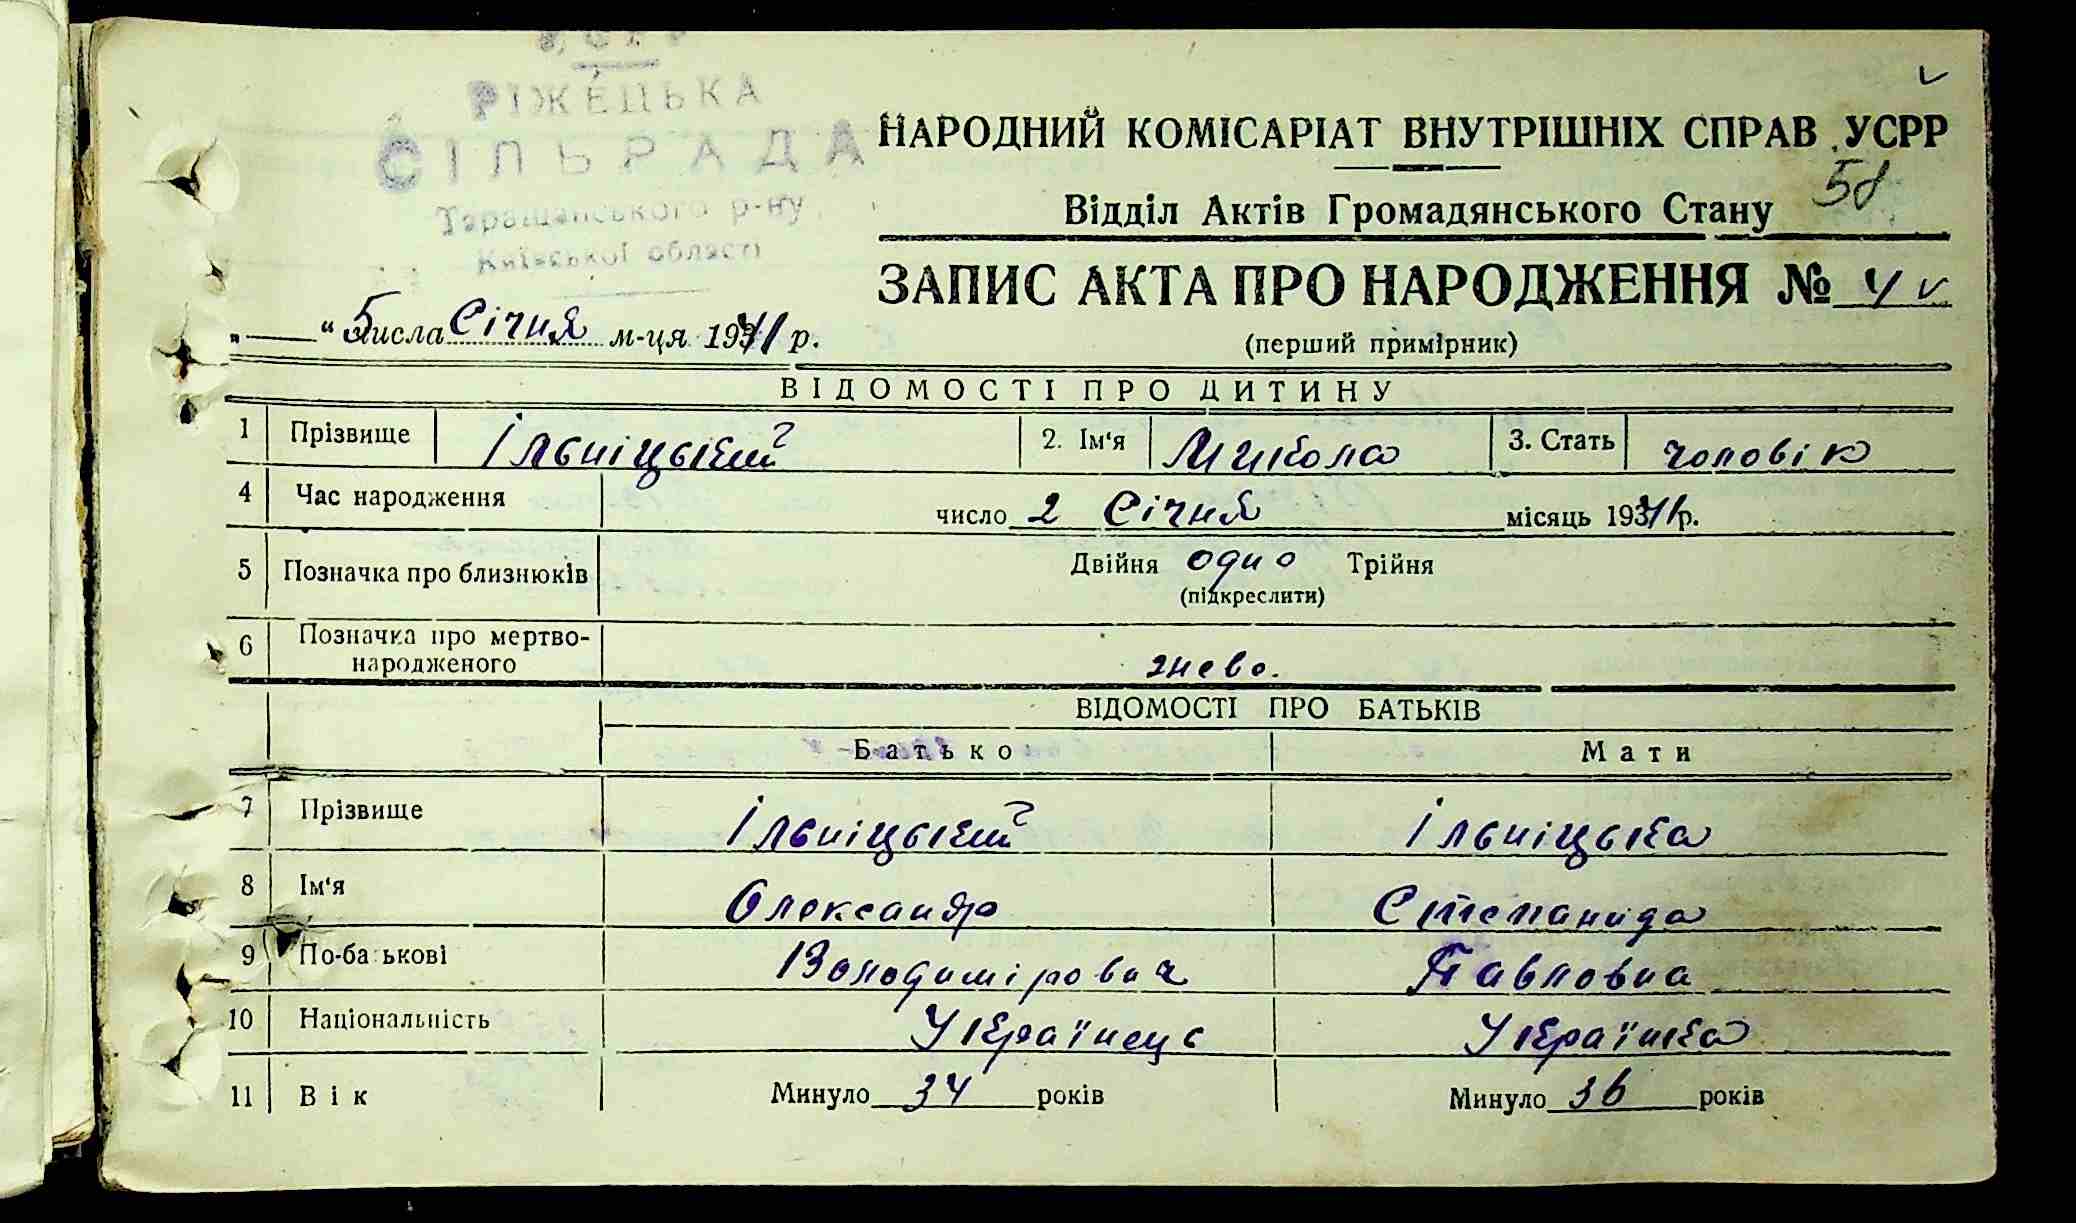 РІЖЕЦЬКА
СІЛЬРАДА
Таращанського р-ну
Київської області
НАРОДНИЙ КОМІСАРІАТ ВНУТРІШНІХ СПРАВ УСРР
58
Відділ Актів Громадянського Стану
ЗАПИС АКТА ПРО НАРОДЖЕННЯ № 4
„ “ 5 числа Січня м-ця 1941 р.
(перший примірник)
ВІДОМОСТІ ПРО ДИТИНУ
1 Прізвище Ільніцький 2. Ім'я Микола 3. Стать чоловік
4 Час народження число 2 Січня місяць 1941 р.
5 Позначка про близнюків Двійня одно Трійня
(підкреслити)
6 Позначка про мертво-
народженого живо.
ВІДОМОСТІ ПРО БАТЬКІВ
Батько Мати
7 Прізвище Ільніцький Ільніцька
8 Ім'я Олександр Степанида
9 По-батькові Володимірович Павловна
10 Національність Українець Українка
11 Вік Минуло 34 років Минуло 36 років